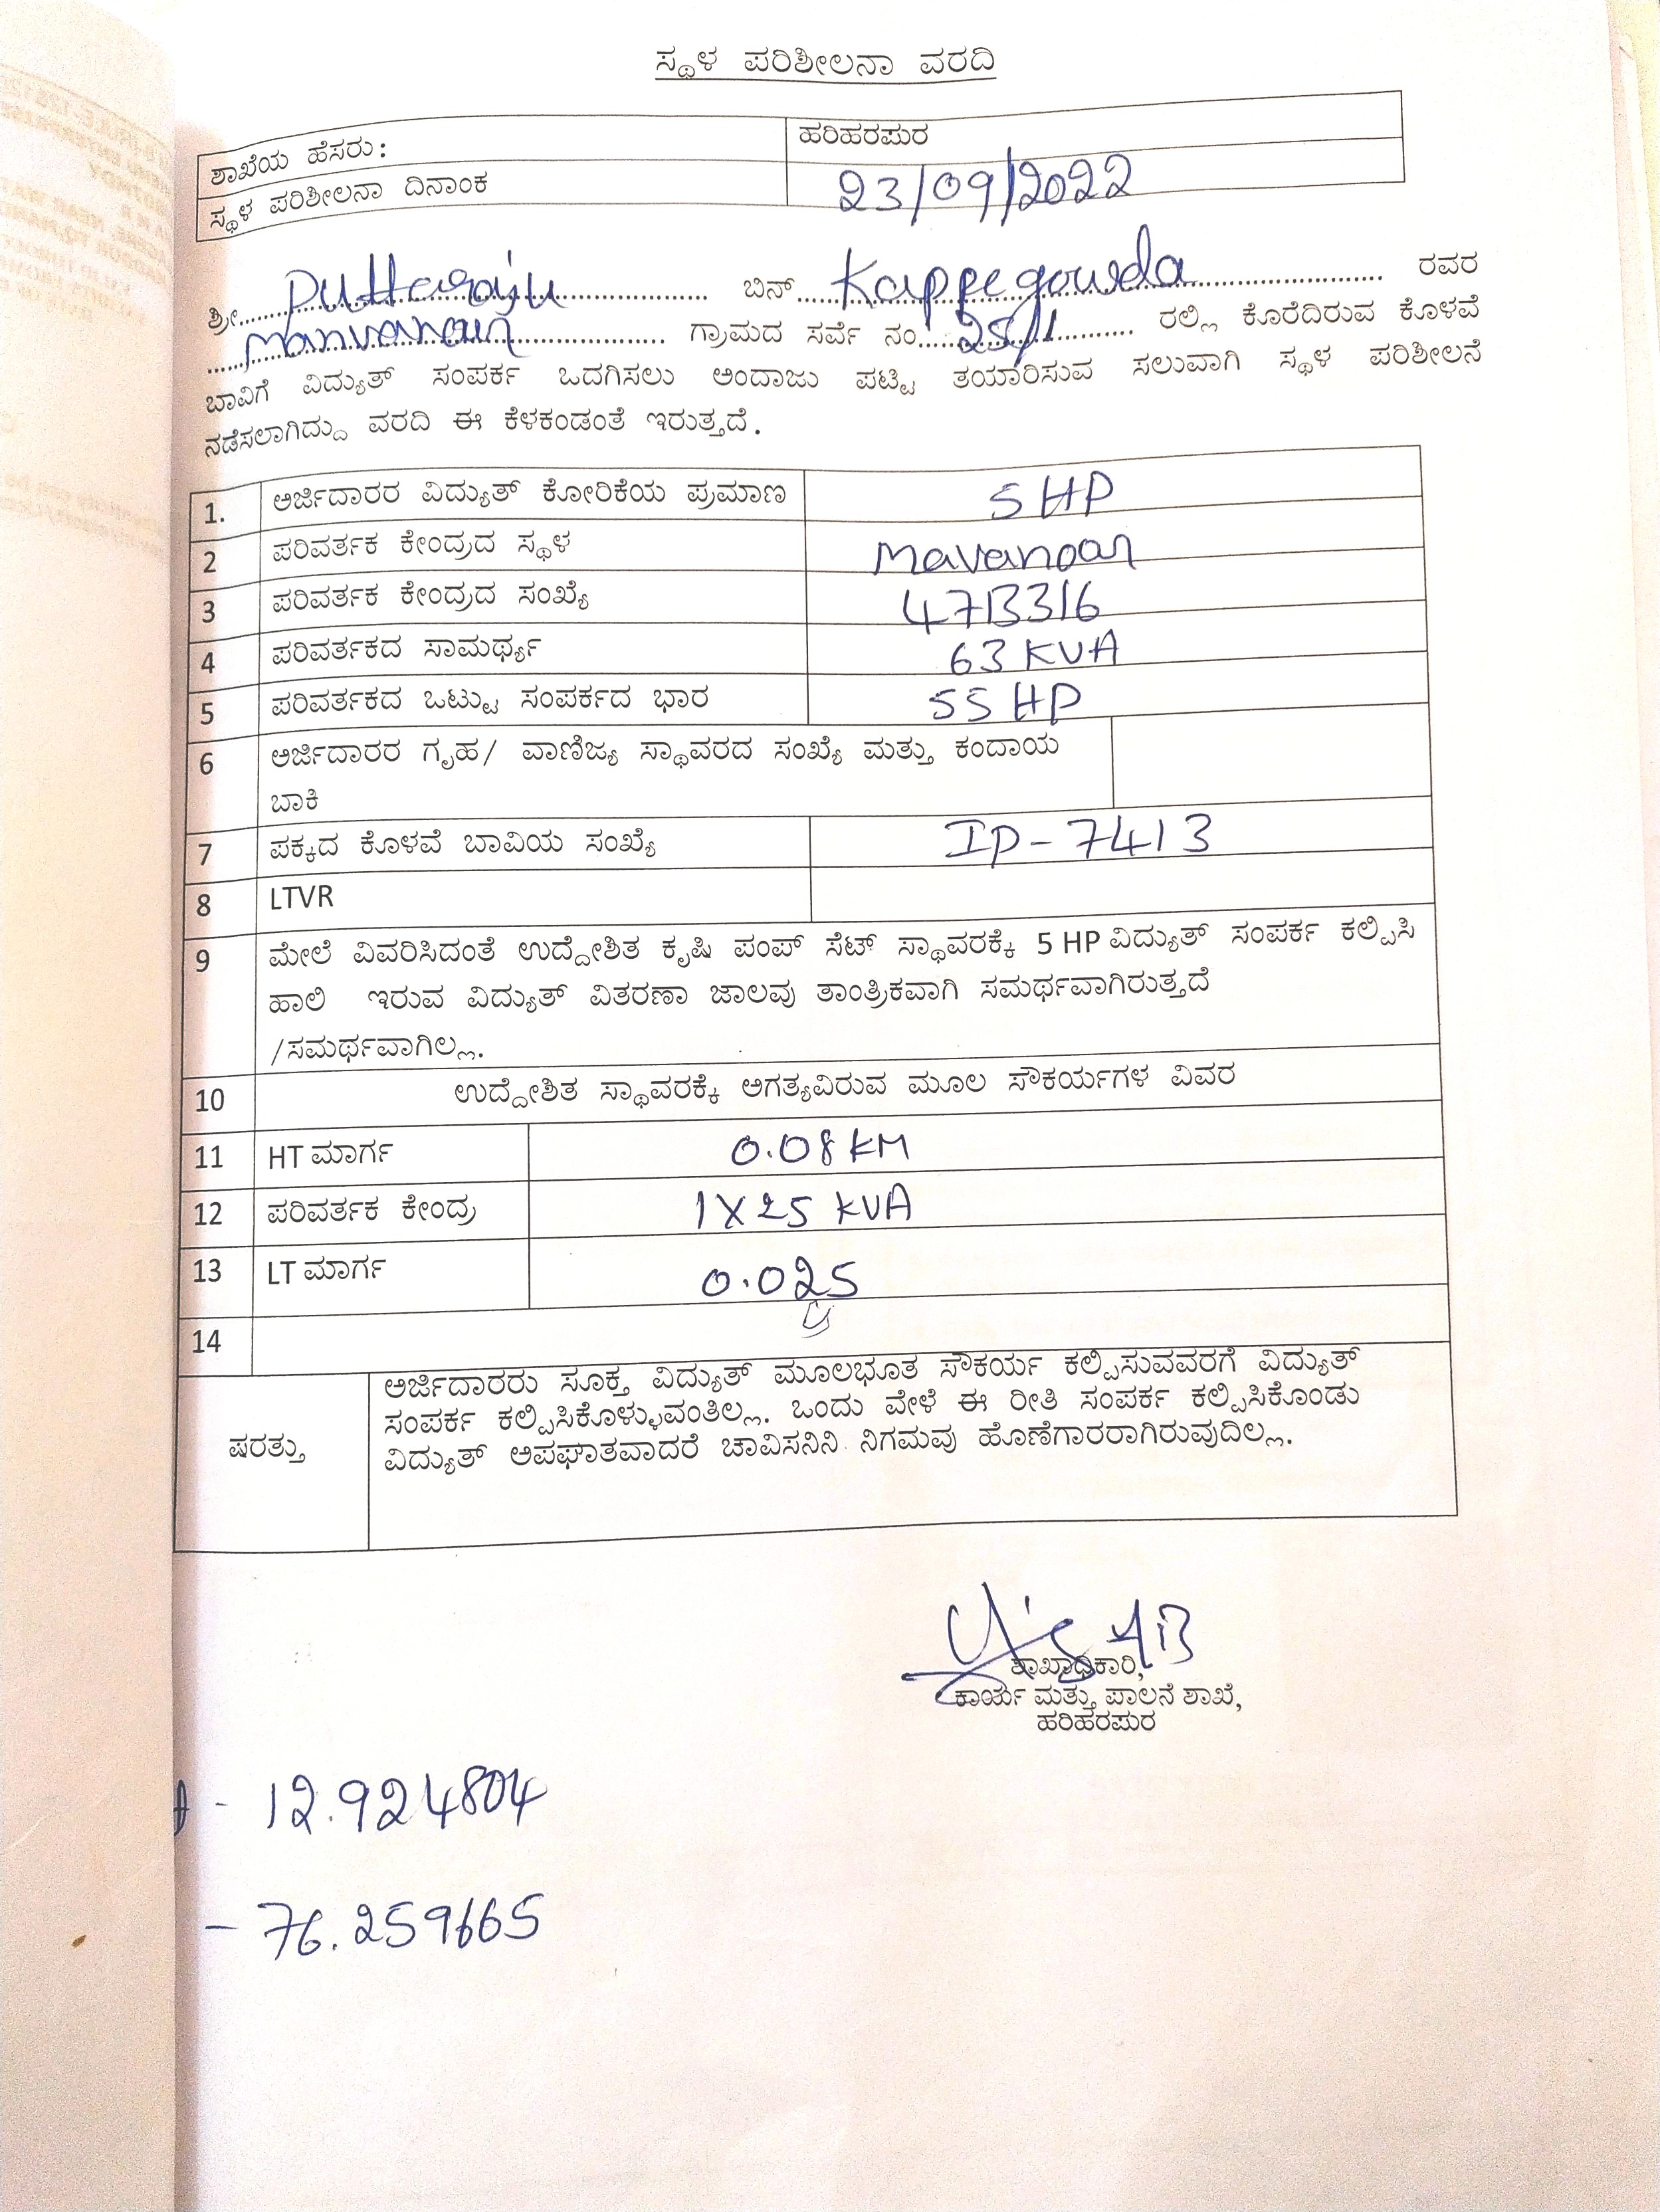 ಸ್ಥಳ ಪರಿಶೀಲನಾ ವರದಿ
ಶಾಖೆಯ ಹೆಸರು: ಹರಿಹರಪುರ
ಸ್ಥಳ ಪರಿಶೀಲನಾ ದಿನಾಂಕ 23/09/2022
ಶ್ರೀ......Puttaraju...... ಬಿನ್......Kappegowda...... ರವರ
............ ಗ್ರಾಮದ ಸರ್ವೆ ನಂ......25/1...... ರಲ್ಲಿ ಕೊರೆದಿರುವ ಕೊಳವೆ
ಬಾವಿಗೆ ವಿದ್ಯುತ್ ಸಂಪರ್ಕ ಒದಗಿಸಲು ಅಂದಾಜು ಪಟ್ಟಿ ತಯಾರಿಸುವ ಸಲುವಾಗಿ ಸ್ಥಳ ಪರಿಶೀಲನೆ
ನಡೆಸಲಾಗಿದ್ದು ವರದಿ ಈ ಕೆಳಕಂಡಂತೆ ಇರುತ್ತದೆ.
1. ಅರ್ಜಿದಾರರ ವಿದ್ಯುತ್ ಕೋರಿಕೆಯ ಪ್ರಮಾಣ 5 HP
2 ಪರಿವರ್ತಕ ಕೇಂದ್ರದ ಸ್ಥಳ
3 ಪರಿವರ್ತಕ ಕೇಂದ್ರದ ಸಂಖ್ಯೆ
4 ಪರಿವರ್ತಕದ ಸಾಮರ್ಥ್ಯ 63 KVA
5 ಪರಿವರ್ತಕದ ಒಟ್ಟು ಸಂಪರ್ಕದ ಭಾರ 55 HP
6 ಅರ್ಜಿದಾರರ ಗೃಹ/ ವಾಣಿಜ್ಯ ಸ್ಥಾವರದ ಸಂಖ್ಯೆ ಮತ್ತು ಕಂದಾಯ
ಬಾಕಿ
7 ಪಕ್ಕದ ಕೊಳವೆ ಬಾವಿಯ ಸಂಖ್ಯೆ IP-7413
8 LTVR
9 ಮೇಲೆ ವಿವರಿಸಿದಂತೆ ಉದ್ದೇಶಿತ ಕೃಷಿ ಪಂಪ್ ಸೆಟ್ ಸ್ಥಾವರಕ್ಕೆ 5 HP ವಿದ್ಯುತ್ ಸಂಪರ್ಕ ಕಲ್ಪಿಸಿ
ಹಾಲಿ ಇರುವ ವಿದ್ಯುತ್ ವಿತರಣಾ ಜಾಲವು ತಾಂತ್ರಿಕವಾಗಿ ಸಮರ್ಥವಾಗಿರುತ್ತದೆ
/ಸಮರ್ಥವಾಗಿಲ್ಲ.
10 ಉದ್ದೇಶಿತ ಸ್ಥಾವರಕ್ಕೆ ಅಗತ್ಯವಿರುವ ಮೂಲ ಸೌಕರ್ಯಗಳ ವಿವರ
11 HT ಮಾರ್ಗ 0.08 KM
12 ಪರಿವರ್ತಕ ಕೇಂದ್ರ 1X25 KVA
13 LT ಮಾರ್ಗ 0.025
14
ಷರತ್ತು ಅರ್ಜಿದಾರರು ಸೂಕ್ತ ವಿದ್ಯುತ್ ಮೂಲಭೂತ ಸೌಕರ್ಯ ಕಲ್ಪಿಸುವವರಗೆ ವಿದ್ಯುತ್
ಸಂಪರ್ಕ ಕಲ್ಪಿಸಿಕೊಳ್ಳುವಂತಿಲ್ಲ. ಒಂದು ವೇಳೆ ಈ ರೀತಿ ಸಂಪರ್ಕ ಕಲ್ಪಿಸಿಕೊಂಡು
ವಿದ್ಯುತ್ ಅಪಘಾತವಾದರೆ ಚಾವಿಸನಿನಿ ನಿಗಮವು ಹೊಣೆಗಾರರಾಗಿರುವುದಿಲ್ಲ.
ಶಾಖಾಧಿಕಾರಿ,
ಕಾರ್ಯ ಮತ್ತು ಪಾಲನೆ ಶಾಖೆ,
ಹರಿಹರಪುರ
- 12.924804
- 76.259665